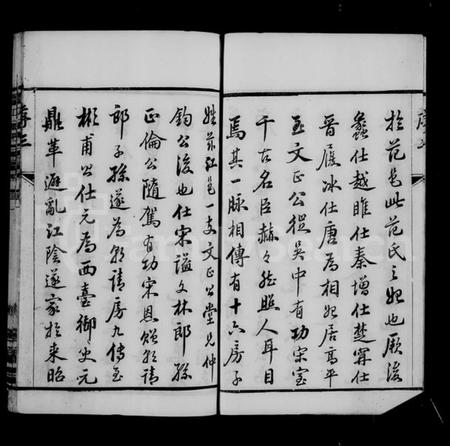 於范邑此范氏之始也厥後
蠡仕越睢仕秦增仕楚甯仕
晉履冰仕唐為相始居高平
至文正公從吳中有功宋室
千古名臣赫々然照人耳目
焉其一脉相傳有十六房子
姓茲江邑一支文正公堂兄仲
鈞公後也仕宋謚文林郎孫
正倫公隨駕有功宋恩贈朝請
郎子孫遂為朝請房九傳至
彬甫公仕元為西臺御史元
鼎革避亂江陰遂家於東昭